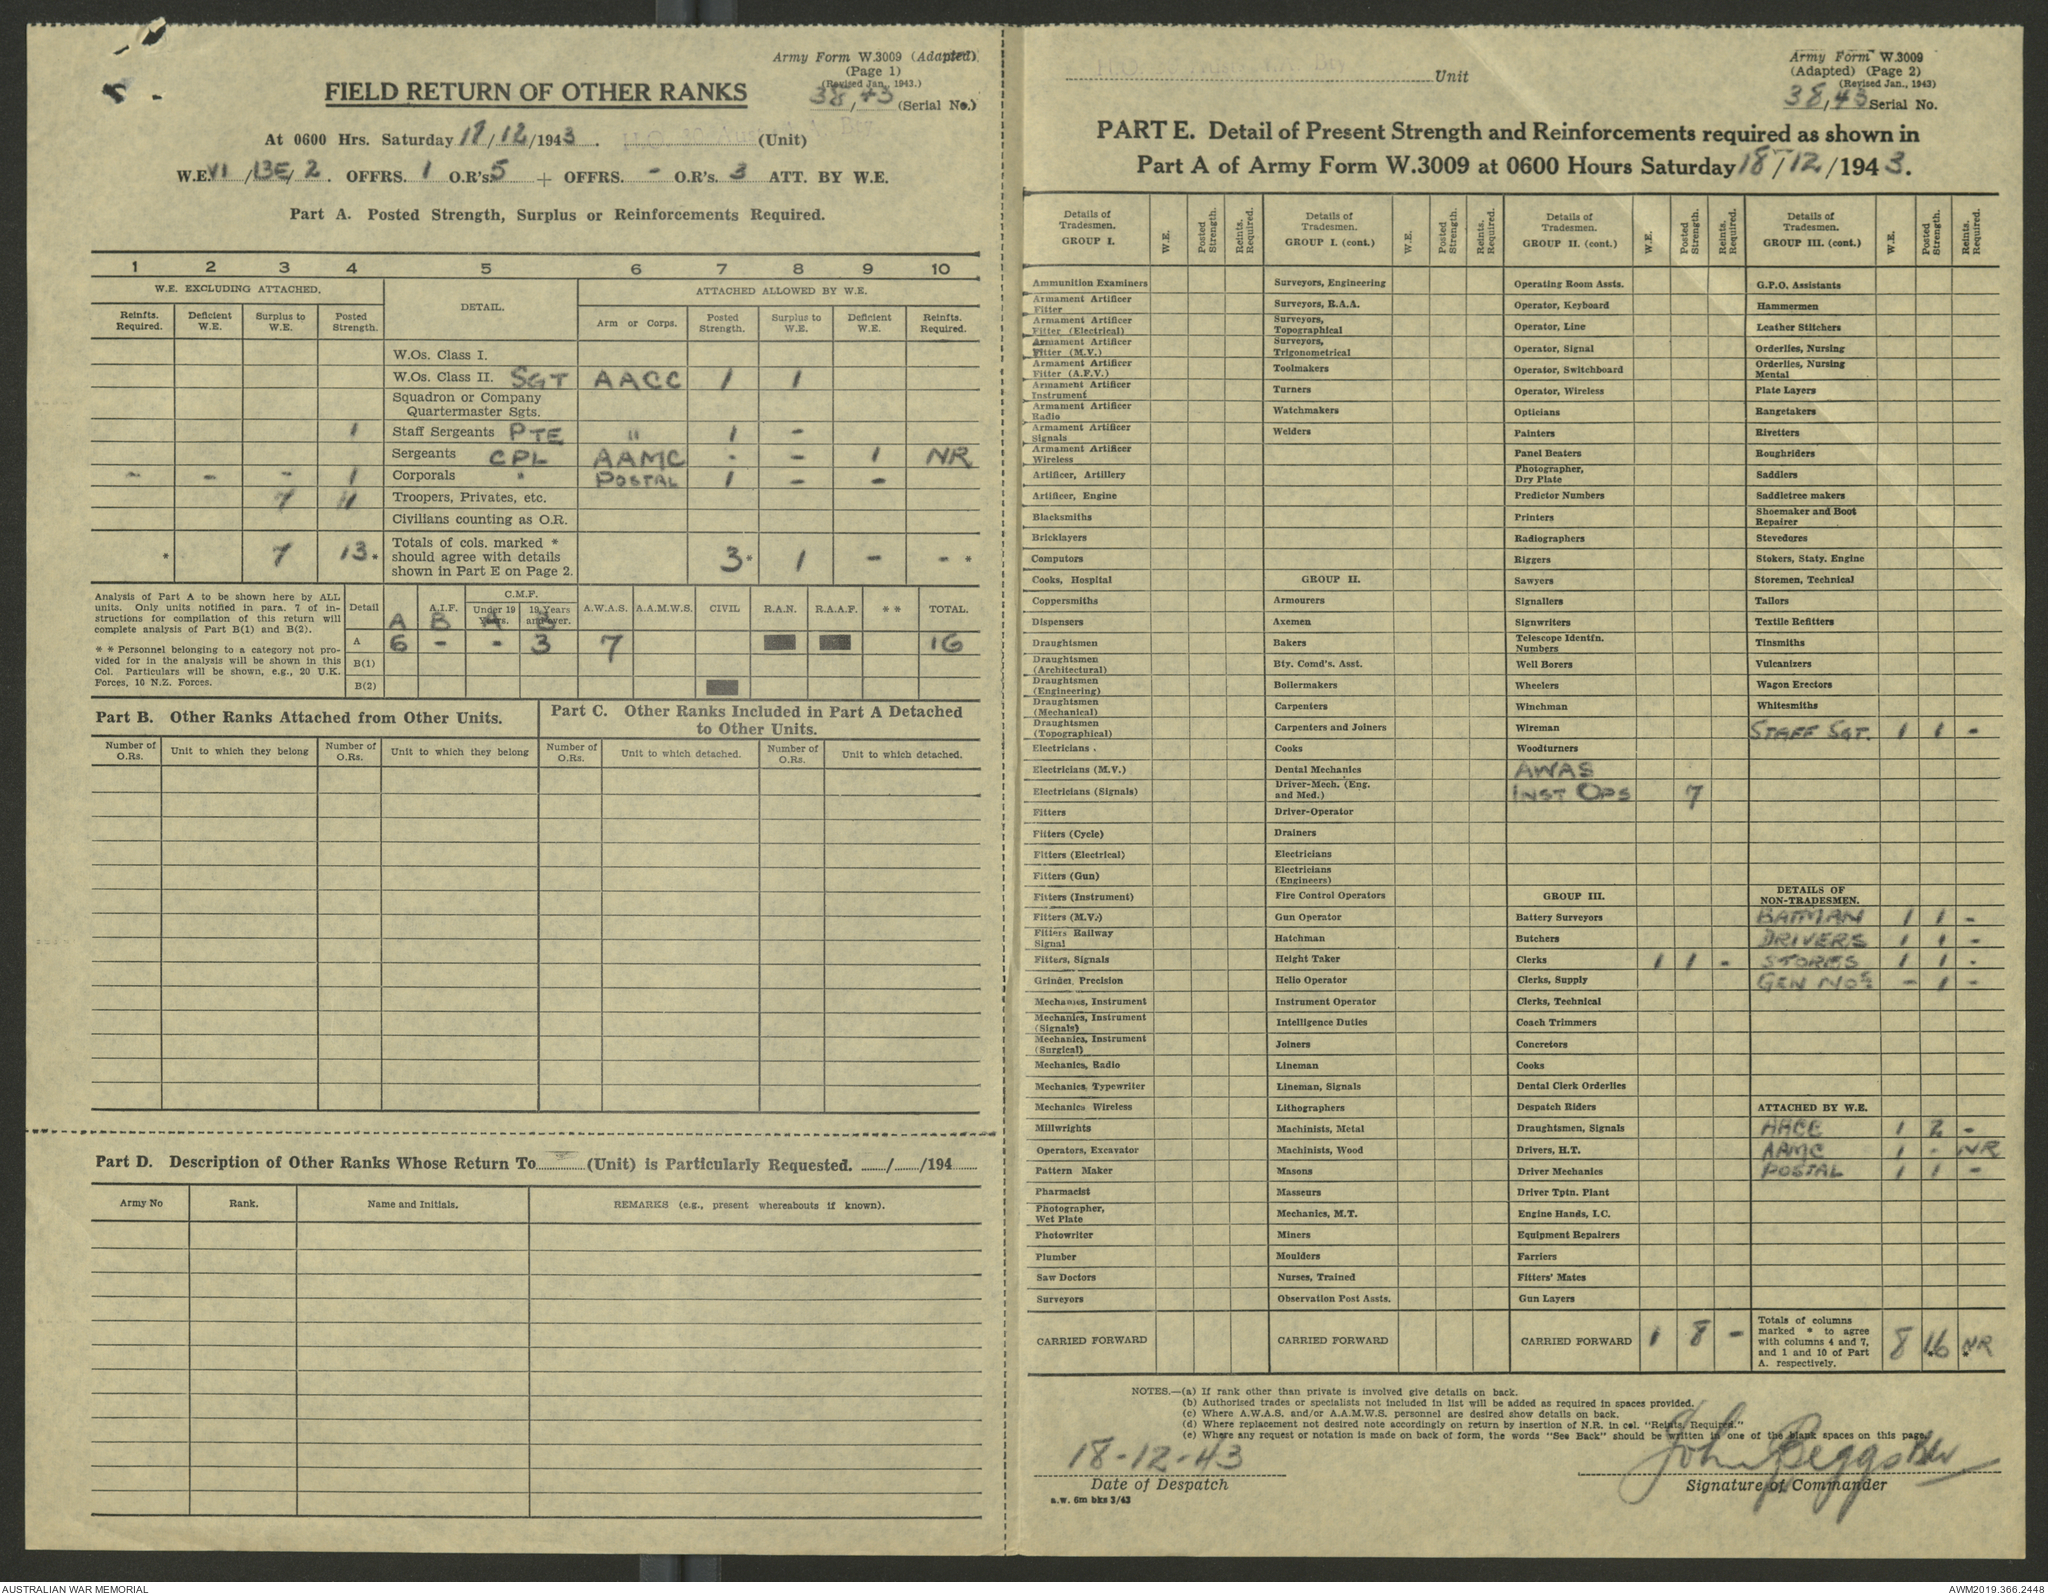 Army Form W.3009 (Adapted)
(Page 1)
(Revised Jan., 1943.)
FIELD RETURN OF OTHER RANKS
38/43 (Serial No.)
At 0600 Hrs. Saturday 18/12/1943. (Unit)
W.E. VI/13E/2. OFFRS. 1 O.R's. 5 + OFFRS. - O.R's. 3 ATT. BY W.E.
Part A. Posted Strength, Surplus or Reinforcements Required.
1 2 3 4 5 6 7 8 9 10
W.E. EXCLUDING ATTACHED. DETAIL. ATTACHED ALLOWED BY W.E.
Reinfts. Required. Deficient W.E. Surplus to W.E. Posted Strength. Arm or Corps. Posted Strength. Surplus to W.E. Deficient W.E. Reinfts. Required.
W.Os. Class I.
W.Os. Class II. SGT AACC 1 1
Squadron or Company
Quartermaster Sgts.
1 Staff Sergeants PTE " 1 -
Sergeants CPL AAMC - - 1 NR
- - - 1 Corporals " POSTAL 1 - -
7 11 Troopers, Privates, etc.
Civilians counting as O.R.
* 7 13* Totals of cols. marked * should agree with details shown in Part E on Page 2. 3* 1 - - *
Analysis of Part A to be shown here by ALL
units. Only units notified in para. 7 of in-
structions for compilation of this return will
complete analysis of Part B(1) and B(2).
* * Personnel belonging to a category not pro-
vided for in the analysis will be shown in this
Col. Particulars will be shown, e.g., 20 U.K.
Forces, 10 N.Z. Forces.
Detail A.I.F. C.M.F. Under 19 Years. 19 Years and over. A.W.A.S. A.A.M.W.S. CIVIL R.A.N. R.A.A.F. * * TOTAL.
A B A B
A 6 - - 3 7 16
B(1)
B(2)
Part B. Other Ranks Attached from Other Units.
Number of O.Rs. Unit to which they belong Number of O.Rs. Unit to which they belong
Part C. Other Ranks Included in Part A Detached
to Other Units.
Number of O.Rs. Unit to which detached. Number of O.Rs. Unit to which detached.
Part D. Description of Other Ranks Whose Return To (Unit) is Particularly Requested. / /194
Army No Rank. Name and Initials. REMARKS (e.g., present whereabouts if known).
Unit
Army Form W.3009
(Adapted) (Page 2)
(Revised Jan., 1943)
38/43 Serial No.
PART E. Detail of Present Strength and Reinforcements required as shown in
Part A of Army Form W.3009 at 0600 Hours Saturday 18/12/1943.
Details of Tradesmen. GROUP I. W.E. Posted Strength. Reints. Required.
Ammunition Examiners
Armament Artificer Fitter
Armament Artificer Fitter (Electrical)
Armament Artificer Fitter (M.V.)
Armament Artificer Fitter (A.F.V.)
Armament Artificer Instrument
Armament Artificer Radio
Armament Artificer Signals
Armament Artificer Wireless
Artificer, Artillery
Artificer, Engine
Blacksmiths
Bricklayers
Computors
Cooks, Hospital
Coppersmiths
Dispensers
Draughtsmen
Draughtsmen (Architectural)
Draughtsmen (Engineering)
Draughtsmen (Mechanical)
Draughtsmen (Topographical)
Electricians .
Electricians (M.V.)
Electricians (Signals)
Fitters
Fitters (Cycle)
Fitters (Electrical)
Fitters (Gun)
Fitters (Instrument)
Fitters (M.V.)
Fitters Railway Signal
Fitters, Signals
Grinder, Precision
Mechanics, Instrument
Mechanics, Instrument (Signals)
Mechanics, Instrument (Surgical)
Mechanics, Radio
Mechanics, Typewriter
Mechanics Wireless
Millwrights
Operators, Excavator
Pattern Maker
Pharmacist
Photographer, Wet Plate
Photowriter
Plumber
Saw Doctors
Surveyors
CARRIED FORWARD
Details of Tradesmen. GROUP I. (cont.) W.E. Posted Strength. Reints. Required.
Surveyors, Engineering
Surveyors, R.A.A.
Surveyors, Topographical
Surveyors, Trigonometrical
Toolmakers
Turners
Watchmakers
Welders
GROUP II.
Armourers
Axemen
Bakers
Bty. Comd's. Asst.
Boilermakers
Carpenters
Carpenters and Joiners
Cooks
Dental Mechanics
Driver-Mech. (Eng. and Med.)
Driver-Operator
Drainers
Electricians
Electricians (Engineers)
Fire Control Operators
Gun Operator
Hatchman
Height Taker
Helio Operator
Instrument Operator
Intelligence Duties
Joiners
Lineman
Lineman, Signals
Lithographers
Machinists, Metal
Machinists, Wood
Masons
Masseurs
Mechanics, M.T.
Miners
Moulders
Nurses, Trained
Observation Post Assts.
CARRIED FORWARD
Details of Tradesmen. GROUP II. (cont.) W.E. Posted Strength. Reints. Required.
Operating Room Assts.
Operator, Keyboard
Operator, Line
Operator, Signal
Operator, Switchboard
Operator, Wireless
Opticians
Painters
Panel Beaters
Photographer, Dry Plate
Predictor Numbers
Printers
Radiographers
Riggers
Sawyers
Signallers
Signwriters
Telescope Identfn. Numbers
Well Borers
Wheelers
Winchman
Wireman
Woodturners
AWAS
INST OPS 7
GROUP III.
Battery Surveyors
Butchers
Clerks 1 1 -
Clerks, Supply
Clerks, Technical
Coach Trimmers
Concretors
Cooks
Dental Clerk Orderlies
Despatch Riders
Draughtsmen, Signals
Drivers, H.T.
Driver Mechanics
Driver Tptn. Plant
Engine Hands, I.C.
Equipment Repairers
Farriers
Fitters' Mates
Gun Layers
CARRIED FORWARD 1 8 -
Details of Tradesmen. GROUP III. (cont.) W.E. Posted Strength. Reints. Required.
G.P.O. Assistants
Hammermen
Leather Stitchers
Orderlies, Nursing
Orderlies, Nursing Mental
Plate Layers
Rangetakers
Rivetters
Roughriders
Saddlers
Saddletree makers
Shoemaker and Boot Repairer
Stevedores
Stokers, Staty. Engine
Storemen, Technical
Tailors
Textile Refitters
Tinsmiths
Vulcanizers
Wagon Erectors
Whitesmiths
STAFF SGT. 1 1 -
DETAILS OF NON-TRADESMEN.
BATMAN 1 1 -
DRIVERS 1 1 -
STORES 1 1 -
GEN NOS - 1 -
ATTACHED BY W.E.
AACC 1 2 -
AAMC 1 - NR
POSTAL 1 1 -
Totals of columns marked * to agree with columns 4 and 7, and 1 and 10 of Part A. respectively. 8 16 NR
NOTES.—(a) If rank other than private is involved give details on back.
(b) Authorised trades or specialists not included in list will be added as required in spaces provided.
(c) Where A.W.A.S. and/or A.A.M.W.S. personnel are desired show details on back.
(d) Where replacement not desired note accordingly on return by insertion of N.R. in col. "Reints. Required."
(e) Where any request or notation is made on back of form, the words "See Back" should be written in one of the blank spaces on this page.
18-12-43
Date of Despatch
John Beggs
Signature of Commander
a.w. 6m bks 3/43
AUSTRALIAN WAR MEMORIAL
AWM2019.366.2448